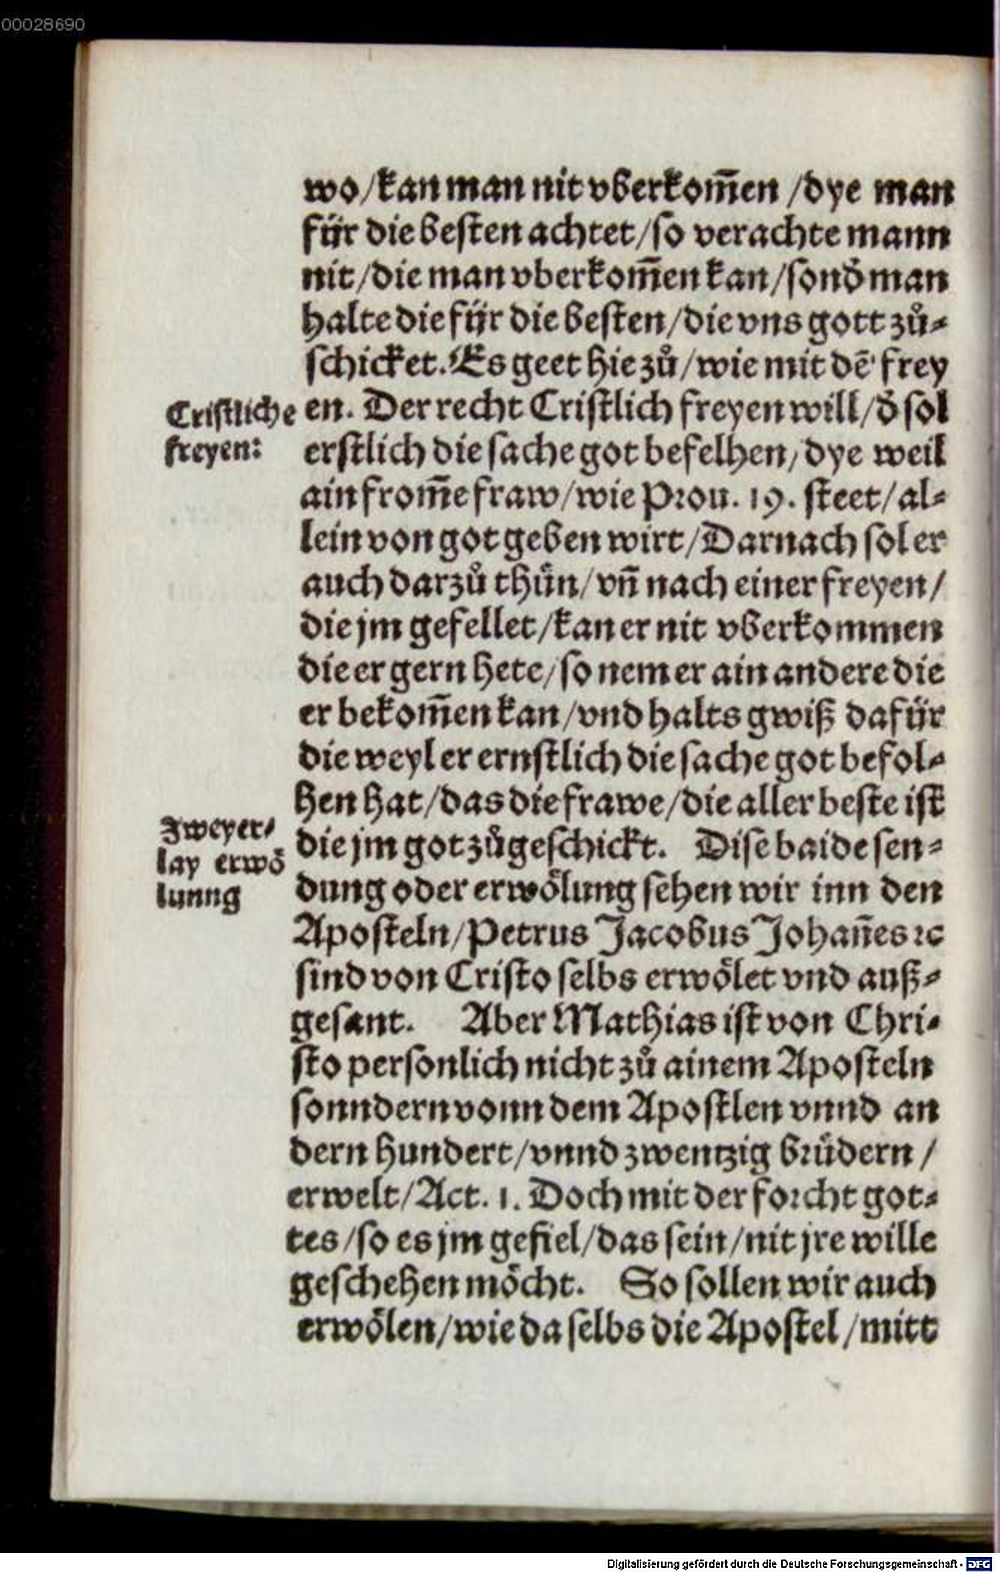 00028690
wo/kan man nit vberkom̃en /dye man
für die besten achtet/so verachte mann
nit/die man vberkom̃en kan/sond̕ man
halte die für die besten/die vns gott zů⸗
schicket. Es geet hie zů/wie mit dē frey
Cristliche
freyen:
en. Der recht Cristlich freyen will/d̕ sol
erstlich die sache got befelhen/dye weil
ain from̃e fraw/wie Prou. 19. steet/al⸗
lein von got geben wirt/Darnach sol er
auch darzů thün/vn̄ nach einer freyen/
die jm gefellet/kan er nit vberkommen
die er gern hete/so nem er ain andere die
er bekom̃en kan/vnd halts gwiß dafür
die weyl er ernstlich die sache got befol⸗
hen hat/das die frawe/die aller beste ist
Zweyer⸗
lay erwö
lunng
die jm got zůgeschickt. Dise baide sen⸗
dung oder erwölung sehen wir inn den
Aposteln/Petrus Jacobus Johan̄es ꝛc
sind von Cristo selbs erwölet vnd auß⸗
gesant. Aber Mathias ist von Chri⸗
sto personlich nicht zů ainem Aposteln
sonndern vonn dem Apostlen vnnd an
dern hundert/vnnd zwentzig brüdern /
erwelt/Act. 1. Doch mit der forcht got⸗
tes/so es jm gefiel/das sein/nit jre wille
geschehen möcht. So sollen wir auch
erwölen/wie da selbs die Apostel/mitt
Digitalisierung gefördert durch die Deutsche Forschungsgemeinschaft - DFG